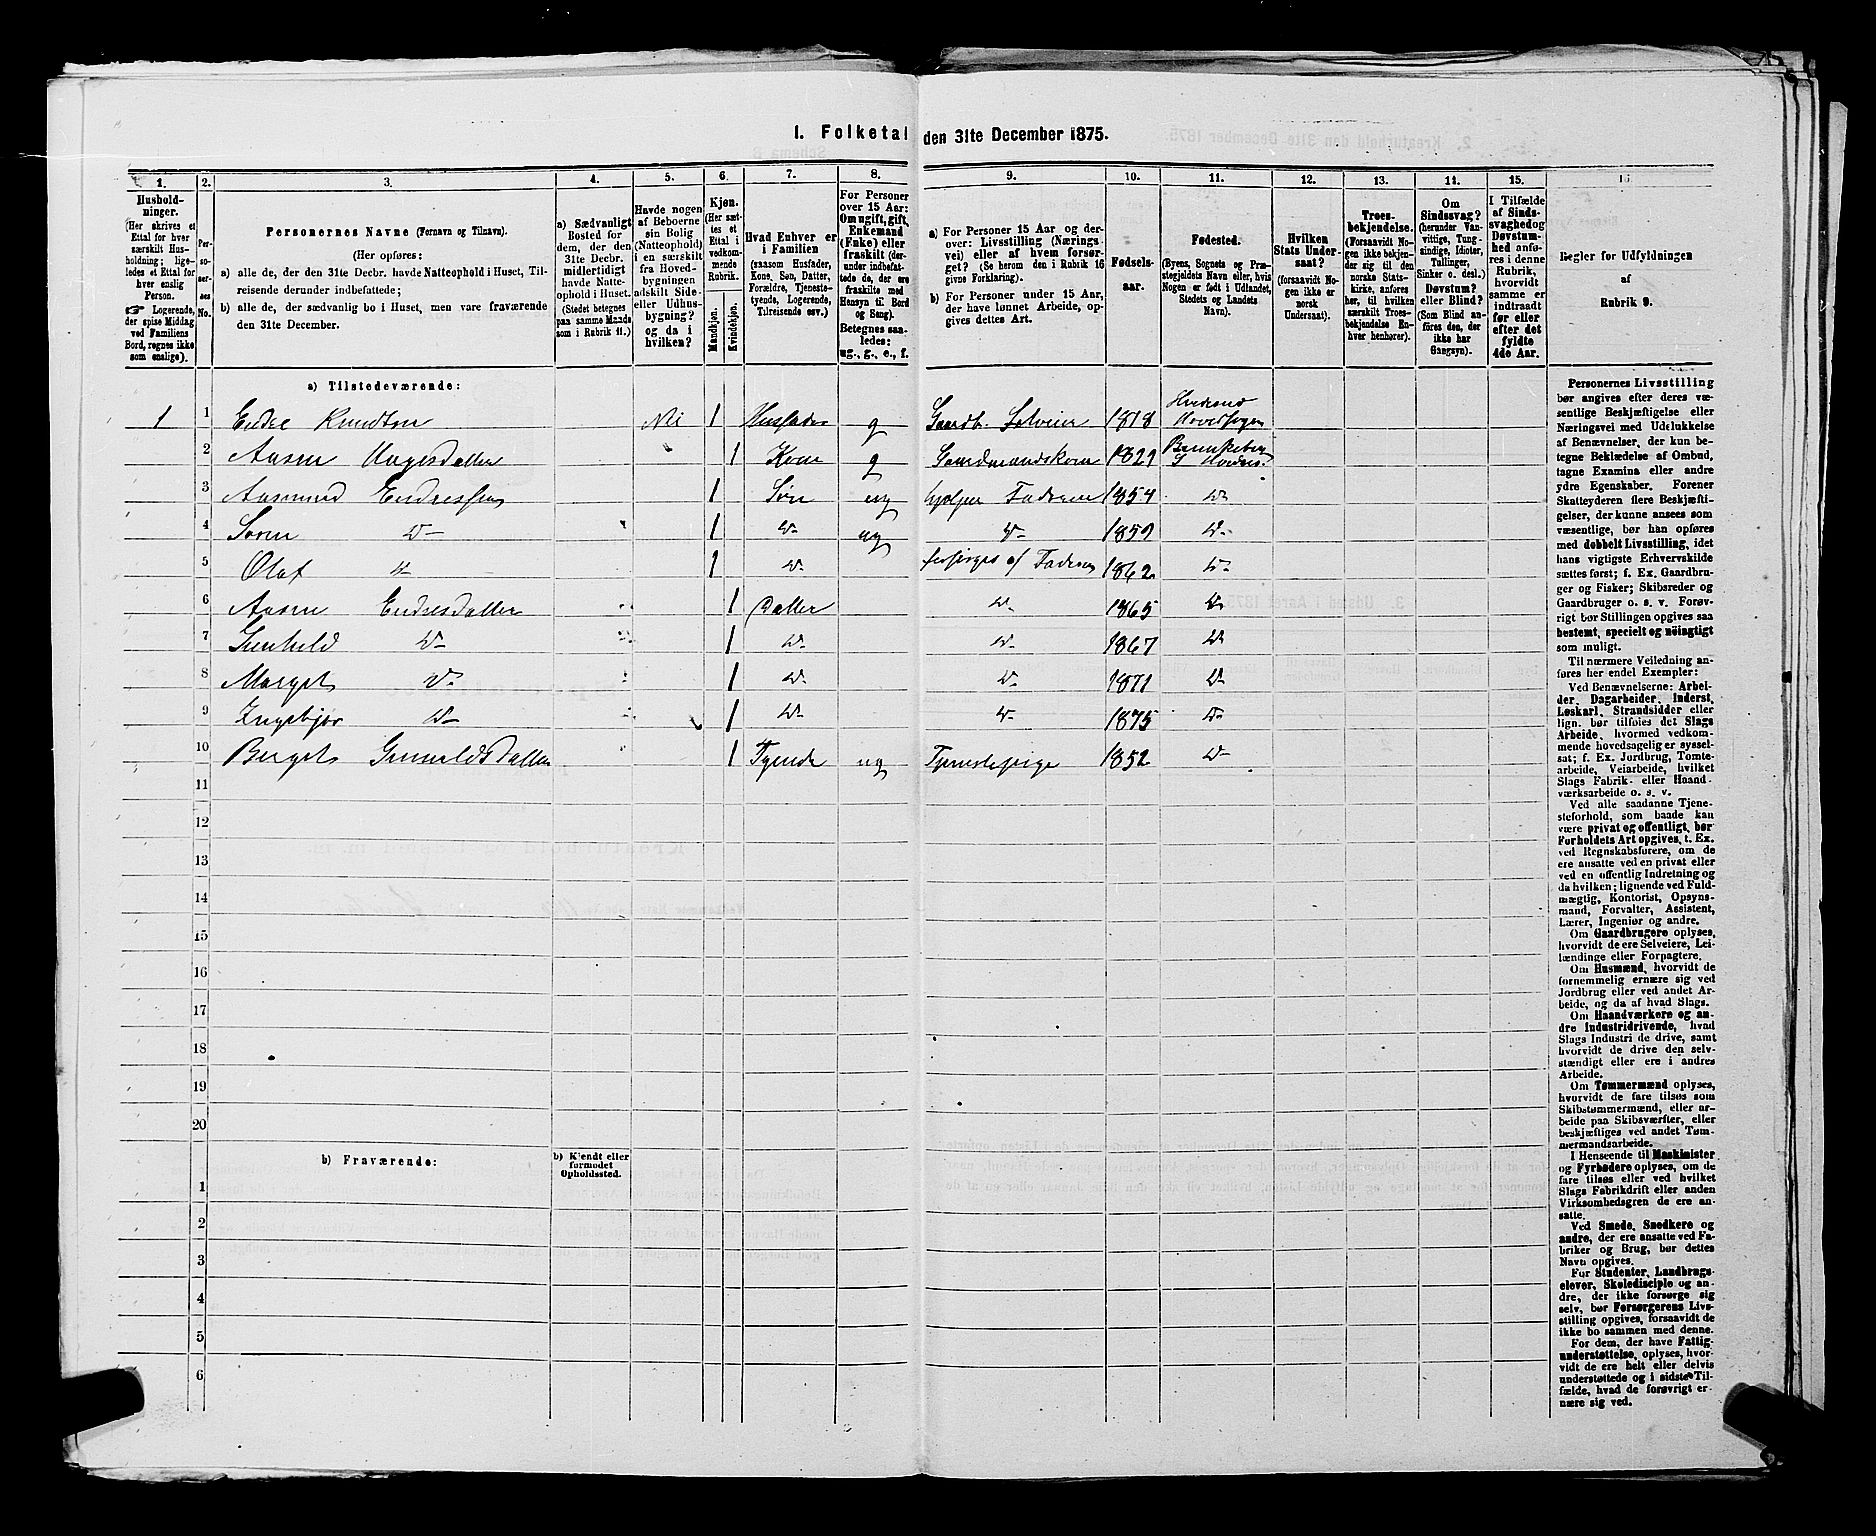 1. Folketal den 31te December 1875.
1.
2.
3.
4.
5.
6.
7.
8.
9.
10.
11.
12.
13.
14.
15.
16.
Hushold-
ninger.
(Her skrives et
Ettal for hver
særskilt Hus-
holdning; lige-
ledes et Ettal for
hver enslig
Person.
☞ Logerende,
der spise Middag
ved Familiens
Bord, regnes ikke
som enslige).
Per-
so-
ner-
nes
No.
Personernes Navne (Fornavn og Tilnavn).
(Her opføres:
a) alle de, der den 31te Decbr. havde Natteophold i Huset, Til-
reisende derunder indbefattede;
b) alle de, der sædvanlig bo i Huset, men vare fraværende
den 31te December.
a) Sædvanligt
Bosted for
dem, der den
31te Decbr.
midlertidigt
havde Natte-
ophold i Huset.
(Stedet betegnes
paa samme Maade
som i Rubrik 11.)
Havde nogen
af Beboerne
sin Bolig
(Natteophold)
i en særskilt
fra Hoved-
bygningen
adskilt Side-
eller Udhus-
bygning?
og da i
hvilken?
Kjøn.
(Her sæt-
tes et
Ettal i
vedkom-
mende
Rubrik.
Mandkjøn.
Kvindekjøn.
Hvad Enhver er
i Familien
(saasom Husfader,
Kone, Søn, Datter,
Forældre, Tjeneste-
tyende, Logerende,
Tilreisende osv.)
For Personer
over 15 Aar:
Om ugift, gift,
Enkemand
(Enke) eller
fraskilt (der-
under indbefat-
tede de, der ere
fraskilte med
Hensyn til Bord
og Seng).
Betegnes saa-
ledes:
ug., g., e., f.
a) For Personer 15 Aar og der-
over: Livsstilling (Nærings-
vei) eller af hvem forsør-
get? (Se herom den i Rubrik 16
givne Forklaring).
b) For Personer under 15 Aar,
der have lønnet Arbeide, op-
gives dettes Art.
Fødsels-
aar.
Fødested.
(Byens, Sognets og Præ-
stegjeldets Navn eller, hvis
Nogen er født i Udlandet,
Stedets og Landets
Navn).
Hvilken
Stats Under-
saat?
(forsaavidt No-
gen ikke er
norsk
Undersaat).
Troes-
bekjendelse.
(Forsaavidt No-
gen ikke bekjen-
der sig til den
norske Stats-
kirke, anføres
her, til hvilken
særskilt Troes-
bekjendelse En-
hver henhører).
Om
Sindssvag?
(herunder Van-
vittige, Tung-
sindige, Idioter,
Tullinger,
Sinker o. desl.)
Døvstum?
eller Blind?
(Som Blind an-
føres den, der
ikke har
Gangsyn).
I Tilfælde
af Sinds-
svaghed og
Døvstum-
hed anfø-
res i denne
Rubrik,
hvorvidt
samme er
indtraadt
før eller
efter det
fyldte
4de Aar.
Regler for Udfyldningen
af
Rubrik 9.
a) Tilstedeværende:
1 1 Endre Knudtsen Nei 1 Husfader g Gaardb. Selveier 1818 Hviteseid Hovedsogn
2 Aasne Aagesdatter 1 Kone g Gaardmandskone 1829 Brunkeberg S Hvides.
3 Aasmund Endressen 1 Søn ug hjelper Faderen 1854 Do
4 Søren Do 1 Do ug Do 1859 Do
5 Olaf Do 1 Do forsørges af Faderen 1862 Do
6 Aasne Endresdatter 1 Datter Do 1865 Do
7 Gunhild Do 1 Do Do 1867 Do
8 Margit Do 1 Do Do 1871 Do
9 Ingebjør Do 1 Do Do 1875 Do
10 Berget Gunuldsdatter 1 Tyende ug Tjenestepige 1852 Do
11
12
13
14
15
16
17
18
19
20
b) Fraværende:
b) Kjendt eller
formodet
Opholdssted.
1
2
3
4
5
6
Personernes Livsstilling
bør angives efter deres væ-
sentlige Beskjæftigelse eller
Næringsvei med Udelukkelse
af Benævnelser, der kun be-
tegne Beklædelse af Ombud,
tagne Examina eller andre
ydre Egenskaber. Forener
Skatteyderen flere Beskjæfti-
gelser, der kunne ansees som
væsentlige, bør han opføres
med dobbelt Livsstilling, idet
hans vigtigste Erhvervskilde
sættes først; f. Ex. Gaardbru-
ger og Fisker; Skibsreder og
Gaardbruger o. s. v. Forøv-
rigt bør Stillingen opgives saa
bestemt, specielt og nøiagtigt
som muligt.
Til nærmere Veiledning an-
føres her endel Exempler:
Ved Benævnelserne: Arbei-
der, Dagarbeider, Inderst,
Løskarl, Strandsidder eller
lign. bør tilføies det Slags
Arbeide, hvormed vedkom-
mende hovedsagelig er syssel-
sat; f. Ex. Jordbrug, Tomte-
arbeide, Veiarbeide, hvilket
Slags Fabrik- eller Haand-
værksarbeide o. s. v.
Ved alle saadanne Tjene-
steforhold, som baade kan
være privat og offentligt, bør
Forholdets Art opgives, t. Ex.
ved Regnskabsførere, om de
ere ansatte ved en privat eller
ved en offentlig Indretning og
da hvilken; lignende ved Fuld-
mægtig, Kontorist, Opsyns-
mand, Forvalter, Assistent,
Lærer, Ingeniør og andre.
Om Gaardbrugere oplyses,
hvorvidt de ere Selveiere, Lei-
lændinge eller Forpagtere.
Om Husmænd, hvorvidt de
fornemmelig ernære sig ved
Jordbrug eller ved andet Ar-
beide, og da af hvad Slags.
Om Haandværkere og an-
dre Industridrivende, hvad
Slags Industri de drive, samt
hvorvidt de drive den selv-
stændigt eller ere i andres
Arbeide.
Om Tømmermænd oplyses,
hvorvidt de fare tilsøs som
Skibstømmermænd, eller ar-
beide paa Skibsværfter, eller
beskjæftiges ved andet Tøm-
mermandsarbeide.
I Henseende til Maskinister
og Fyrbødere oplyses, om de
fare tilsøs eller ved hvilket
Slags Fabrikdrift eller anden
Virksomhedsgren de ere an-
satte.
Ved Smede, Snedkere og
andre, der ere ansatte ved Fa-
briker og Brug, bør dettes
Navn opgives.
For Studenter, Landbrugs-
elever, Skoledisciple og an-
dre, der ikke forsørge sig
selv, bør Forsørgerens Livs-
stilling opgives, forsaavidt de
ikke bo sammen med denne.
For dem, der have Fattig-
understøttelse, oplyses, hvor-
vidt de ere helt eller delvis
understøttede og i sidste Til-
fælde, hvad de forøvrigt er-
nære sig ved.